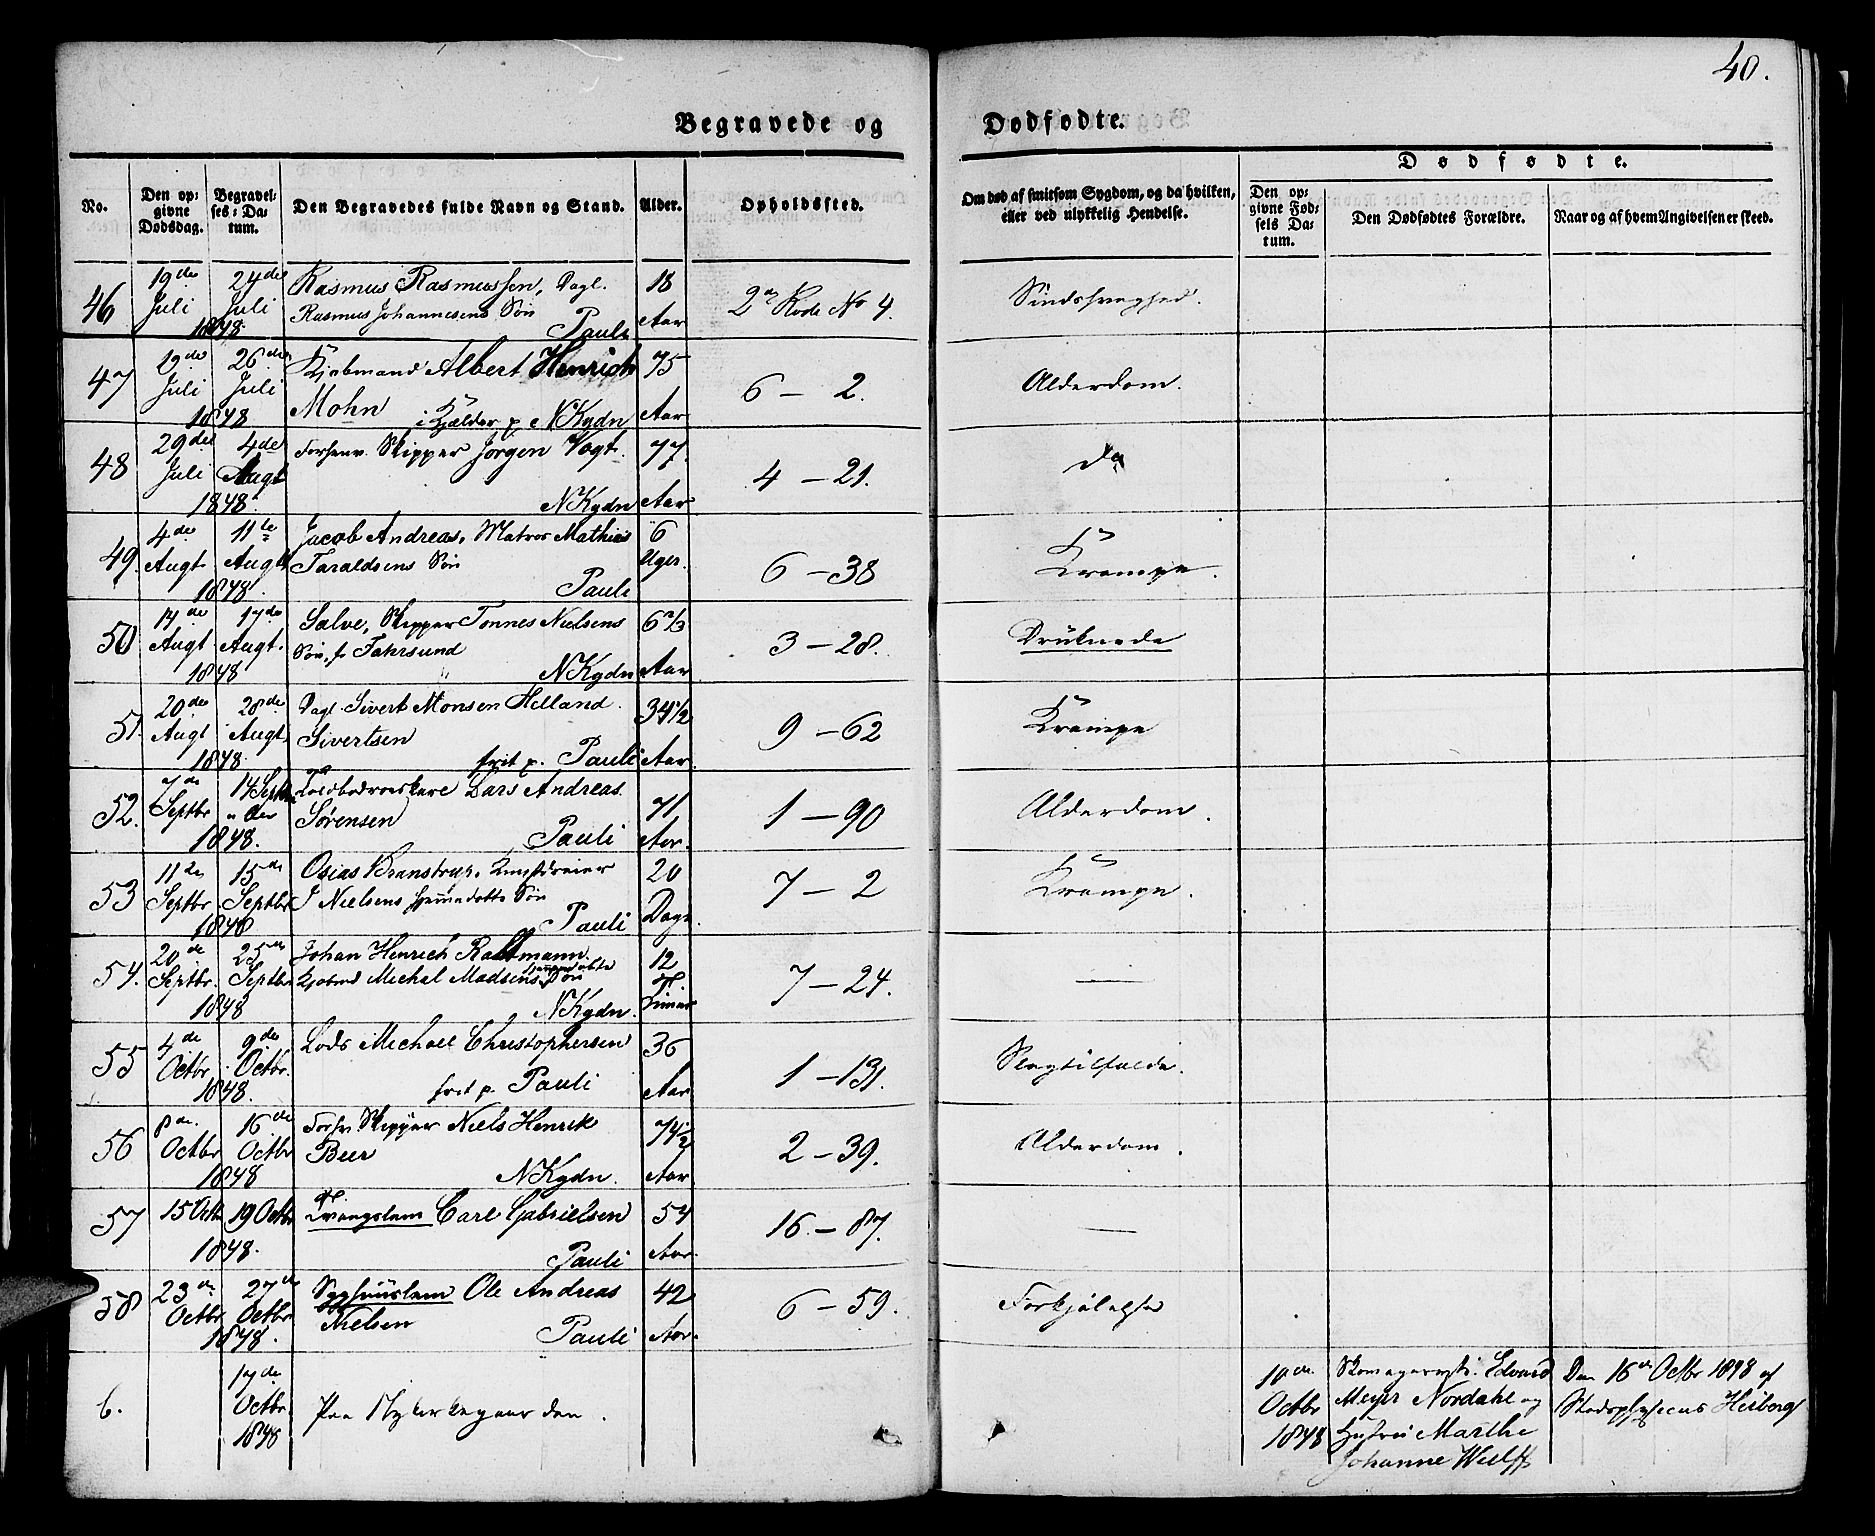 40.
Begravede og Dødfødte.
No.
Den opgivne Dødsdag.
Begravelses-Datum.
Den Begravedes fulde Navn og Stand.
Alder.
Opholdssted.
Om død af smitsom Sygdom, og da hvilken, eller ved ulykkelig Hendelse.
Dødfødte.
Den opgivne Fødsels Datum.
Den Dødfødtes Forældre.
Naar og af hvem Angivelsen er skeed.
46 19de Juli 24de Juli 1848. Rasmus Rasmussen, Dagl.
Rasmus Johannesens Søn
Pauli
18 Aar
2de Rode No 4.
Sindssvaghed.
47 19de Juli 26de Juli 1848 Kjøbmand Albert Henrich
Mohn i Kjælder p. NKgdn
75 Aar
6 – 2.
Alderdom.
48 29de Juli 4de Augt 1848. Forhenv. Skipper Jørgen Vogt.
NKgdn
77 Aar
4 – 21.
do
49. 4de Augt 11te Augt 1848. Jacob Andreas, Matros Mathias
Taraldsens Søn
Pauli
6 Uger.
6 – 38
Krampe.
50 14de Augt 17de Augt. 1848 Salve, Skipper Tønnes Nielsens
Søn, f. Fahrsund
NKgdn
6 2/3 Aar
3 – 28.
Druknede
51. 20de Augt 28de Augt. 1848. Dagl. Sivert Monsen Helland
Sivertsen
frit p. Pauli
34 1/2 Aar.
9 – 62
Krampe
52. 7de Septbr 14 Septbr 1848. Toldbodroerskarl Lars Andreas
Sørensen
Pauli
71 Aar.
1 – 90
Alderdom.
53 11te Septbr. 15de Septbr 1848 Osias Branstrup, Kunstdreier
J Nielsens hjemmedøbte Søn
Pauli
20 Dage.
7 – 2
Krampe.
54. 20de Septbr. 25de Septbr 1848 Johan Henrich
Kjøbmd Michal Madsens hjemmedøbte Søn
NKgdn.
12 Timer
7 – 24.
—
55 4de Octbr 9de Octbr. 1848. Lods Michael Christophersen
frit p. Pauli
36 Aar
1 – 131.
Slagtilfælde.
56 8de Octbr 16de Octbr 1848 Forhv. Skipper Niels Henrik
Beer
NKgdn.
74 1/2 Aar
2 – 39.
Alderdom.
57 15 Octbr 19 Octbr 1848. Tvangslem Carl Gabrielsen
Pauli
54 Aar.
16 – 87.
—
58 23de Octbr 27de Octbr 1848. Syghuuslem Ole Andreas
Nielsen
Pauli
42 Aar.
6 – 59.
Forkjølelse
6. 17de Octbr. 1848 Paa Nykirkegaarden.
10de Octbr 1848
Skomagersv. Edvard
Meyer Nordahl og
Hustru Marthe
Johanne Wulff
Den 16de Octbr 1848 af
Stadsphysicus Heiberg